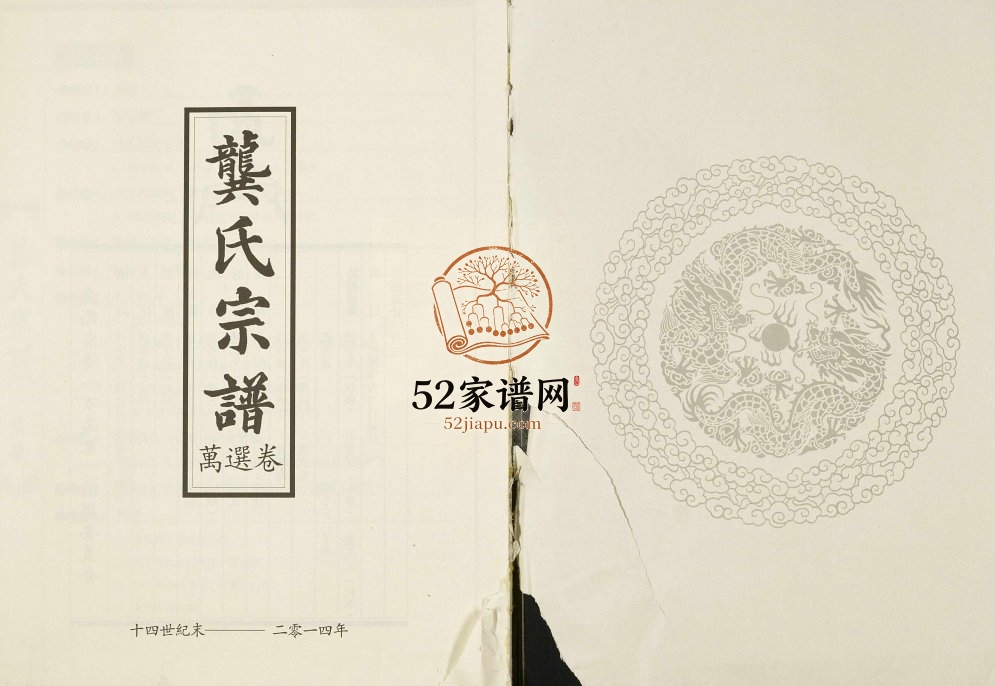 龔氏宗譜
萬選卷
十四世紀末———二零一四年
52家谱网
52jiapu.com